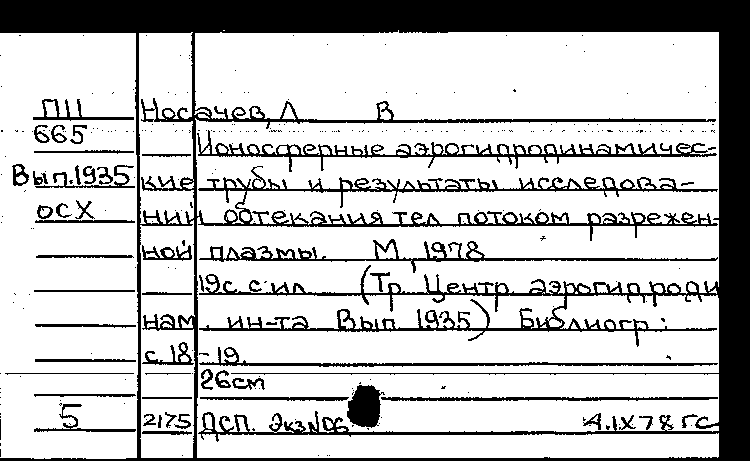 П11 Носачев, Л В
665 Ионосферные аэрогидродинамичес-
Вып.1935 кие трубы и результаты исследова-
осХ ний обтекания тел потоком разрежен-
ной плазмы. М, 1978
19с с ил (Тр Центр аэрогидроди
нам. ин-та Вып 1935) Библиогр:
с. 18-19.
26см
5 2175 ДСП. Экз№06 4.IX78 ГС